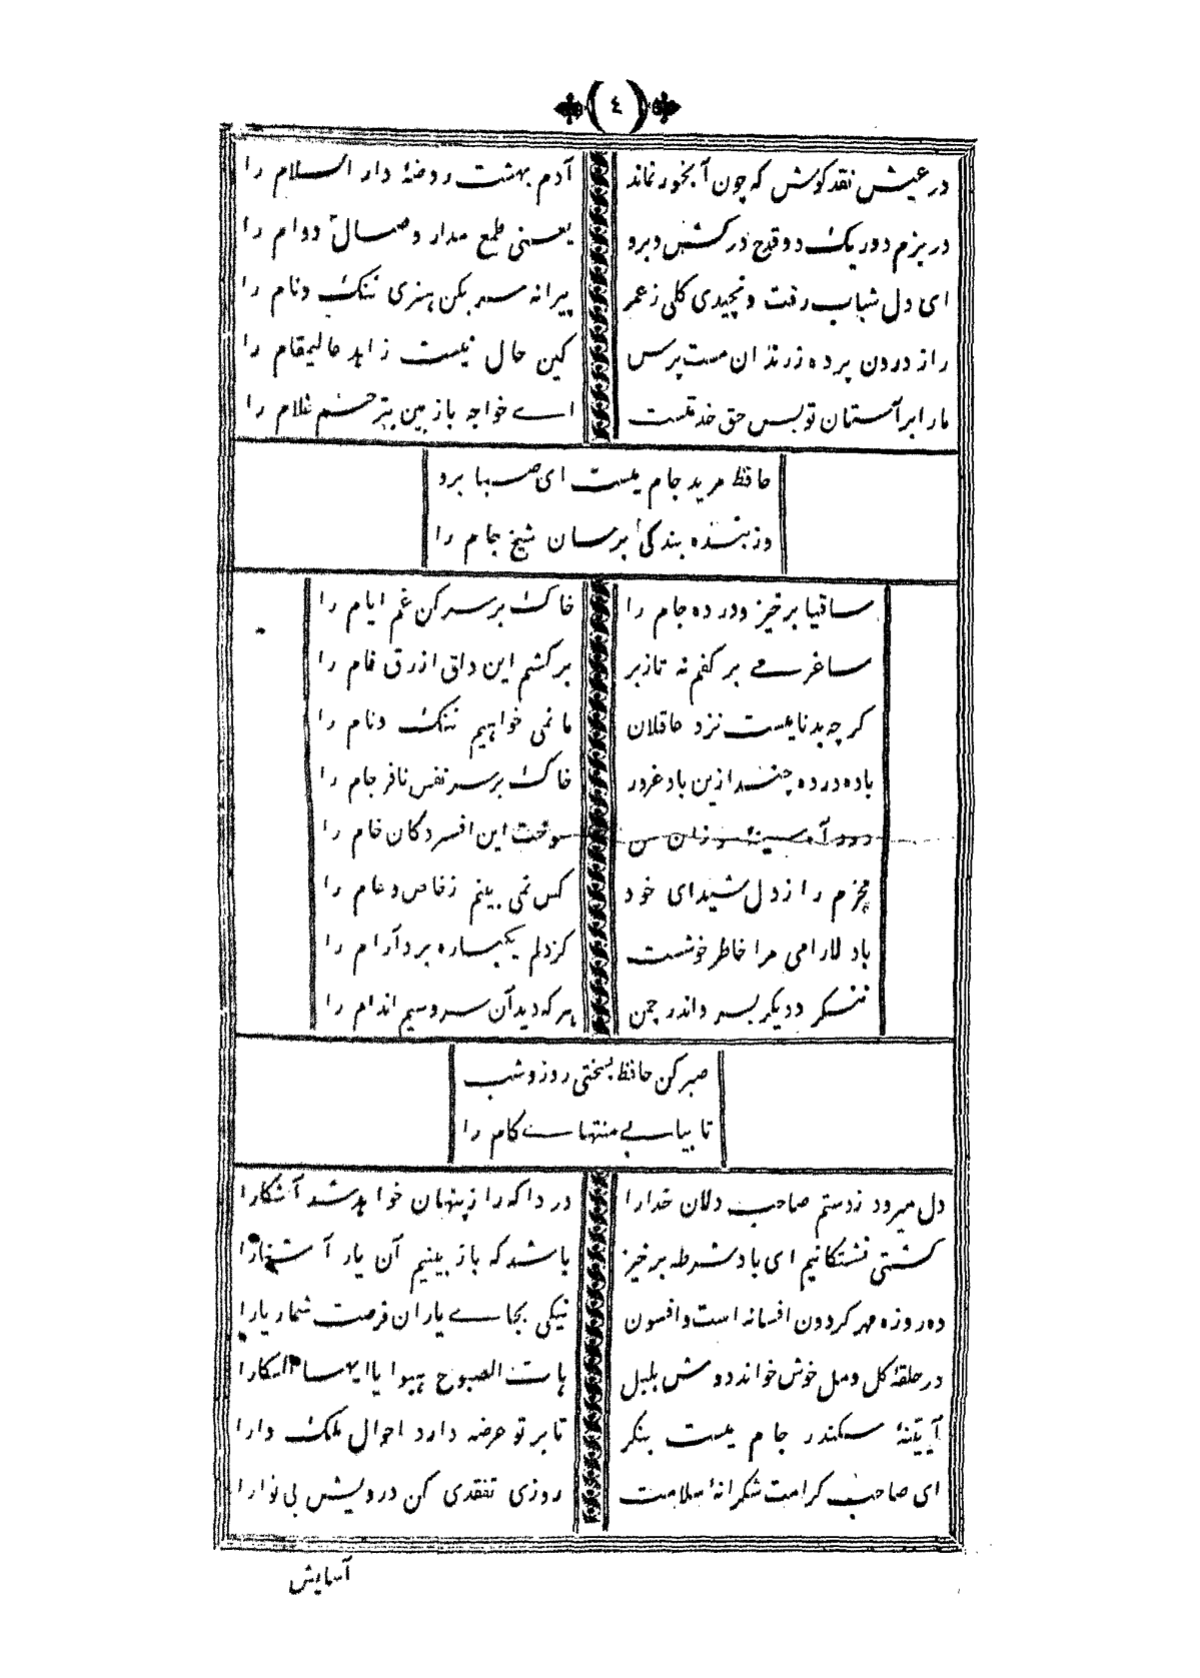 ٤
در عیش نقد کوش که چون آبخور نماند آدم بهشت روضهٔ دار السلام را
در بزم دور یک دو قدح در کش و برو یعنی طمع مدار وصال دوام را
ای دل شباب رفت و نچیدی گلی ز عمر پیرانه سر بکن هنری ننک ونام را
راز درون پرده ز رندان مست پرس کین حال نیست زاهد عالیمقام را
مارا بر آستان تو بس حق خدمتست اے خواجه باز بین بترحم غلام را
حافظ مرید جام میست ای صبا برو
وز بنده بندگی برسان شیخ جام را
ساقیا برخیز ودر ده جام را خاک برسر کن غم ایام را
ساغر مے بر کفم نه تا ز بر برکشم این دلق ازرق فام را
کر چه بدنامیست نزد عاقلان ما نمی خواهیم ننک ونام را
باده درده چند ازین باد غرور خاک برسر نفس نافرجام را
دود آه سینهٔ سوزان من سوخت این افسردکان خام را
محرم راز دل شیدای خود کس نمی بینم ز خاص و عام را
با دلارامی مرا خاطر خوشست کز دلم یکباره برد آرام را
ننکرد دیکر بسرو اندر چمن هر که دید آن سرو سیم اندام را
صبر کن حافظ بسختی روز وشب
تا بیابے منتهاے کام را
دل میرود ز دستم صاحب دلان خدارا دردا که راز پنهان خواهد شد آشکارا
کشتی نشستکانیم ای باد شرطه برخیز باشد که باز بینیم آن یار آشنارا
ده روزه مهر کردون افسانه است وافسون نیکی بجاے یاران فرصت شمار یارا
در حلقهٔ کل ومل خوش خواند دوش بلبل هات الصبوح هبوا یا ایها السکارا
آیینهٔ سکندر جام میست بنکر تا بر تو عرضه دارد احوال ملک دارا
ای صاحب کرامت شکرانهٔ سلامت روزی تفقدی کن درویش بی نوارا
آسایش